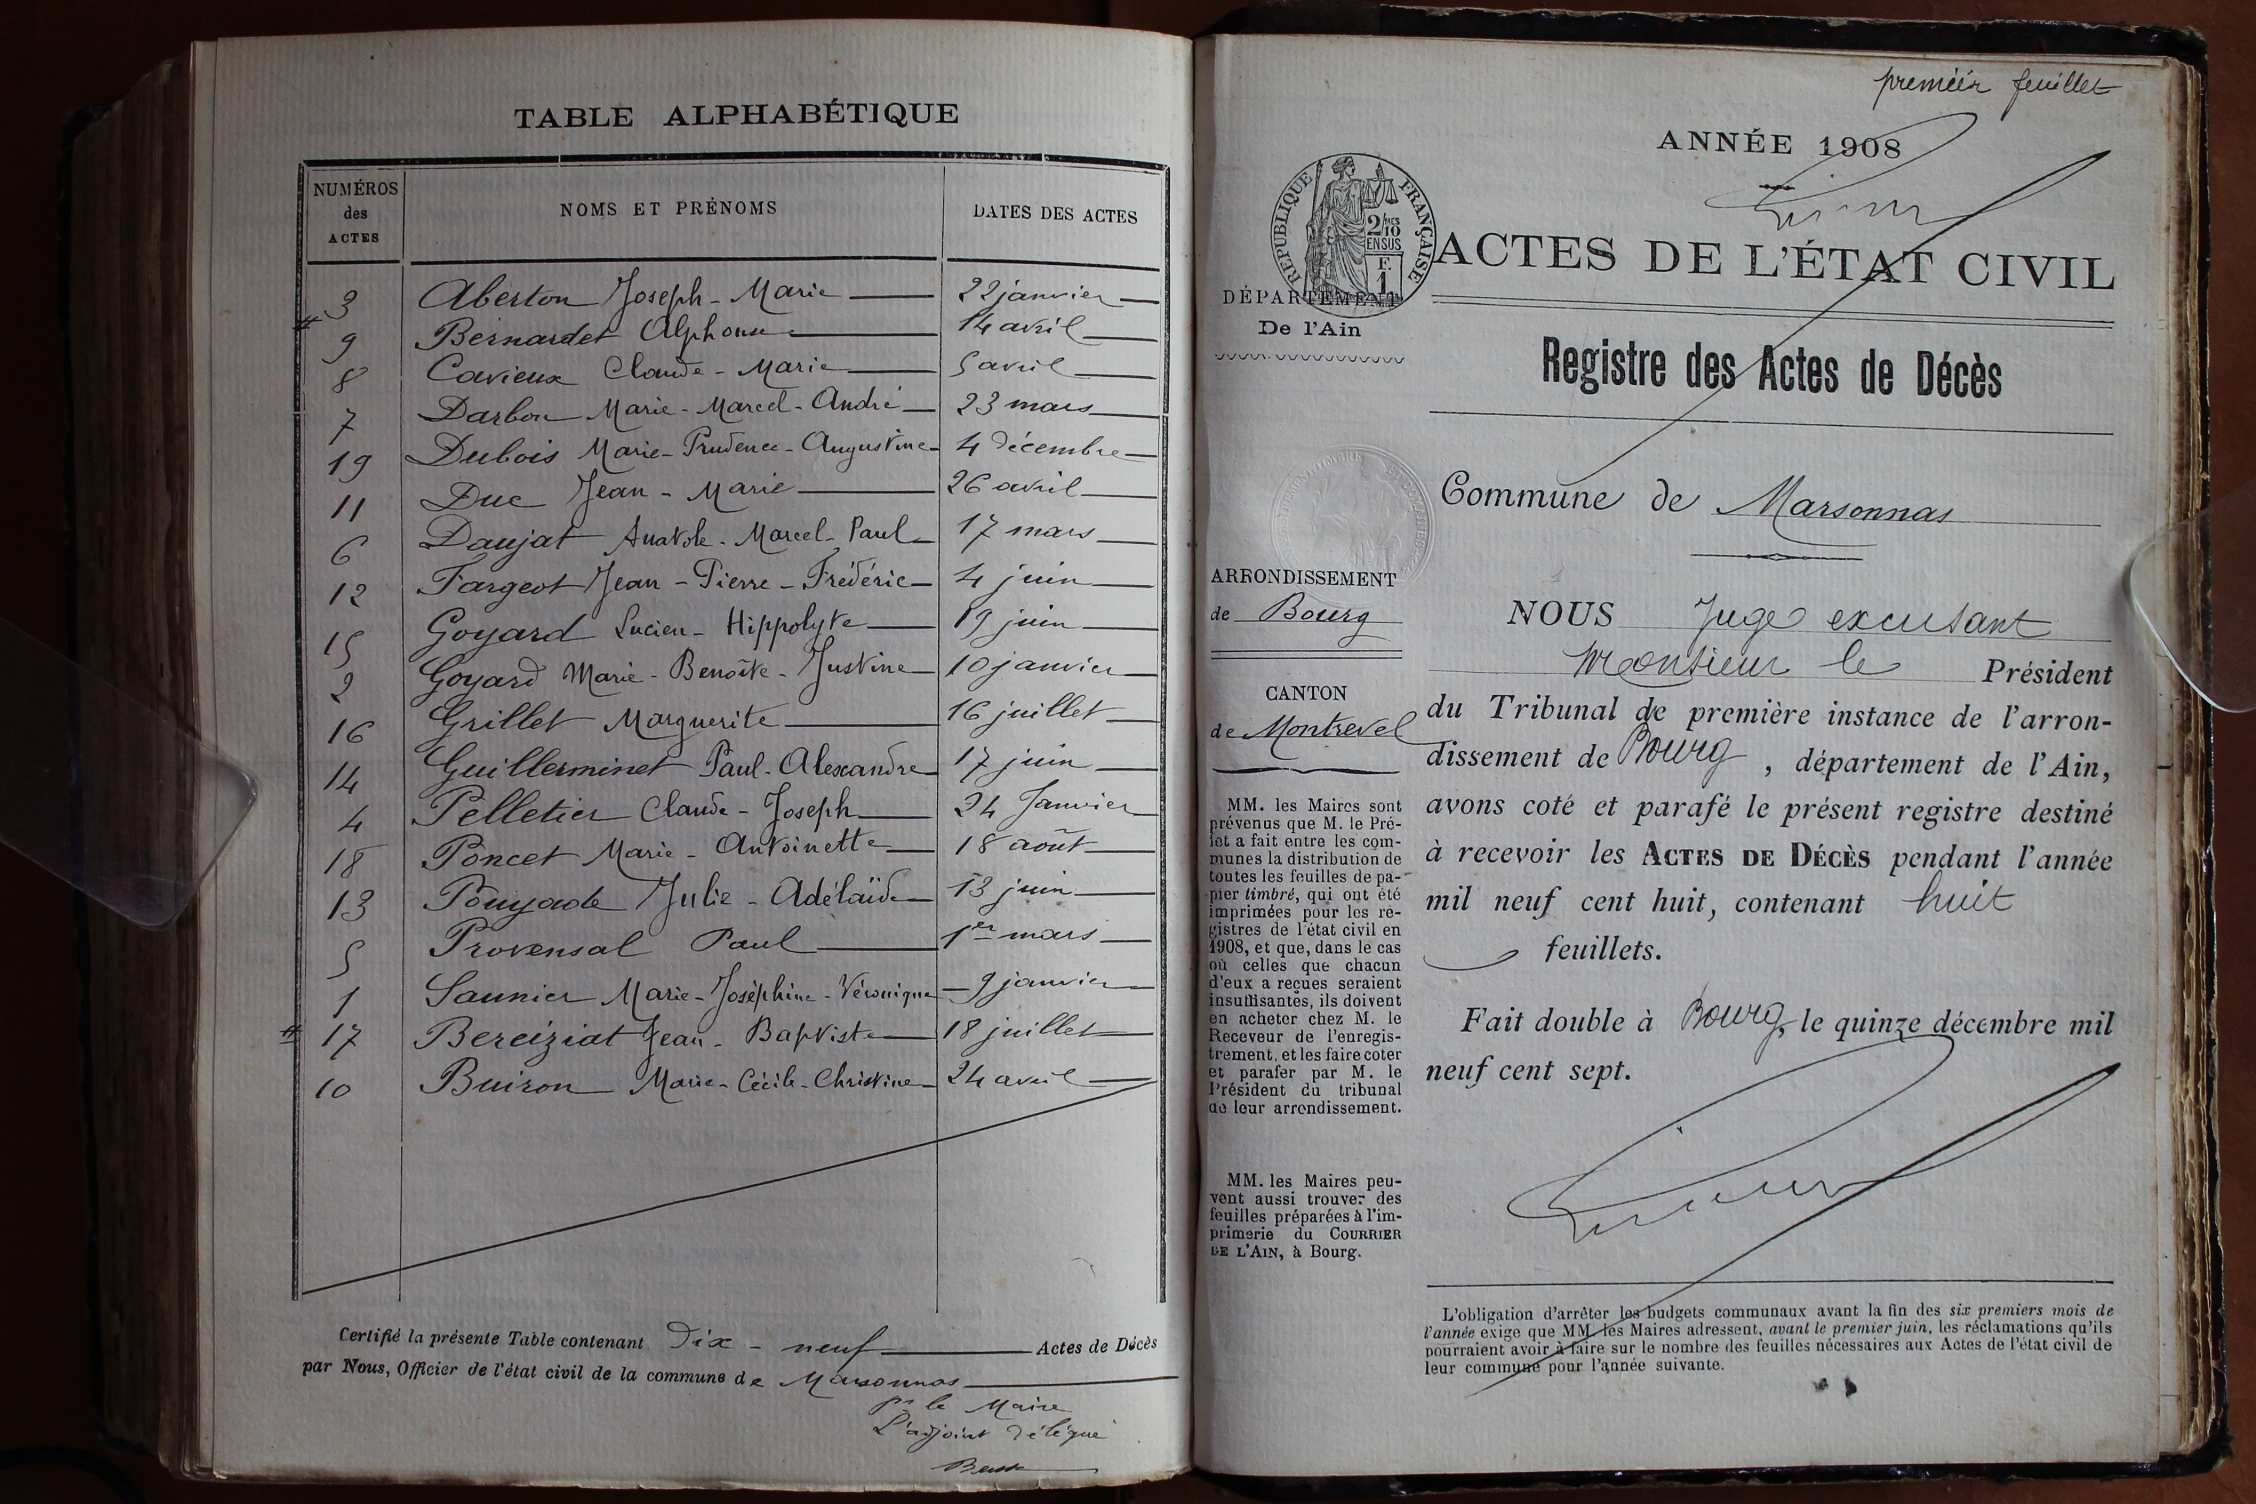 TABLE ALPHABÉTIQUE
NUMÉROS des ACTES NOMS ET PRÉNOMS DATES DES ACTES
3 Aberton Joseph - Marie 22 janvier
9 Bernardet Alphonse 14 avril
8 Cavieux Claude - Marie 5 avril
7 Darbon Marie - Marcel - André 23 mars
19 Dubois Marie - Prudence - Augustine 4 décembre
11 Duc Jean - Marie 26 avril
6 Daujat Anatole - Marcel - Paul 17 mars
12 Fargeot Jean - Pierre - Frédéric 4 juin
15 Goyard Lucien - Hippolyte 19 juin
2 Goyard Marie - Benoîte - Justine 10 janvier
16 Grillet Marguerite 16 juillet
14 Guillerminet Paul - Alexandre 17 juin
4 Pelletier Claude - Joseph 24 Janvier
18 Poncet Marie - Antoinette 18 août
13 Pouyade Julie - Adélaïde 13 juin
5 Provensal Paul 1er mars
1 Saunier Marie - Joséphine - Véronique 9 janvier
17 Bereiziat Jean - Baptiste 18 juillet
10 Buiron Marie - Cécile - Christine 24 avril
Certifié la présente Table contenant Dix - neuf Actes de Décès
par Nous, Officier de l'état civil de la commune de Marsonnas
pr le Maire
L'adjoint délégué
premier feuillet
ANNÉE 1908
RÉPUBLIQUE FRANÇAISE
2/10
EN SUS
F.
1
ACTES DE L'ÉTAT CIVIL
DÉPARTEMENT
De l'Ain
Registre des Actes de Décès
Commune de Marsonnas
ARRONDISSEMENT
de Bourg
CANTON
de Montrevel
MM. les Maires sont
prévenus que M. le Pré-
fet a fait entre les com-
munes la distribution de
toutes les feuilles de pa-
pier timbré, qui ont été
imprimées pour les re-
gistres de l'état civil en
1908, et que, dans le cas
où celles que chacun
d'eux a reçues seraient
insuffisantes, ils doivent
en acheter chez M. le
Receveur de l'enregis-
trement, et les faire coter
et parafer par M. le
Président du tribunal
de leur arrondissement.
MM. les Maires peu-
vent aussi trouver des
feuilles préparées à l'im-
primerie du COURRIER
DE L'AIN, à Bourg.
NOUS Juge excusant
Monsieur le Président
du Tribunal de première instance de l'arron-
dissement de Bourg, département de l'Ain,
avons coté et parafé le présent registre destiné
à recevoir les ACTES DE DÉCÈS pendant l'année
mil neuf cent huit, contenant huit
feuillets.
Fait double à Bourg, le quinze décembre mil
neuf cent sept.
L'obligation d'arrêter les budgets communaux avant la fin des six premiers mois de
l'année exige que MM. les Maires adressent, avant le premier juin, les réclamations qu'ils
pourraient avoir à faire sur le nombre des feuilles nécessaires aux Actes de l'état civil de
leur commune pour l'année suivante.